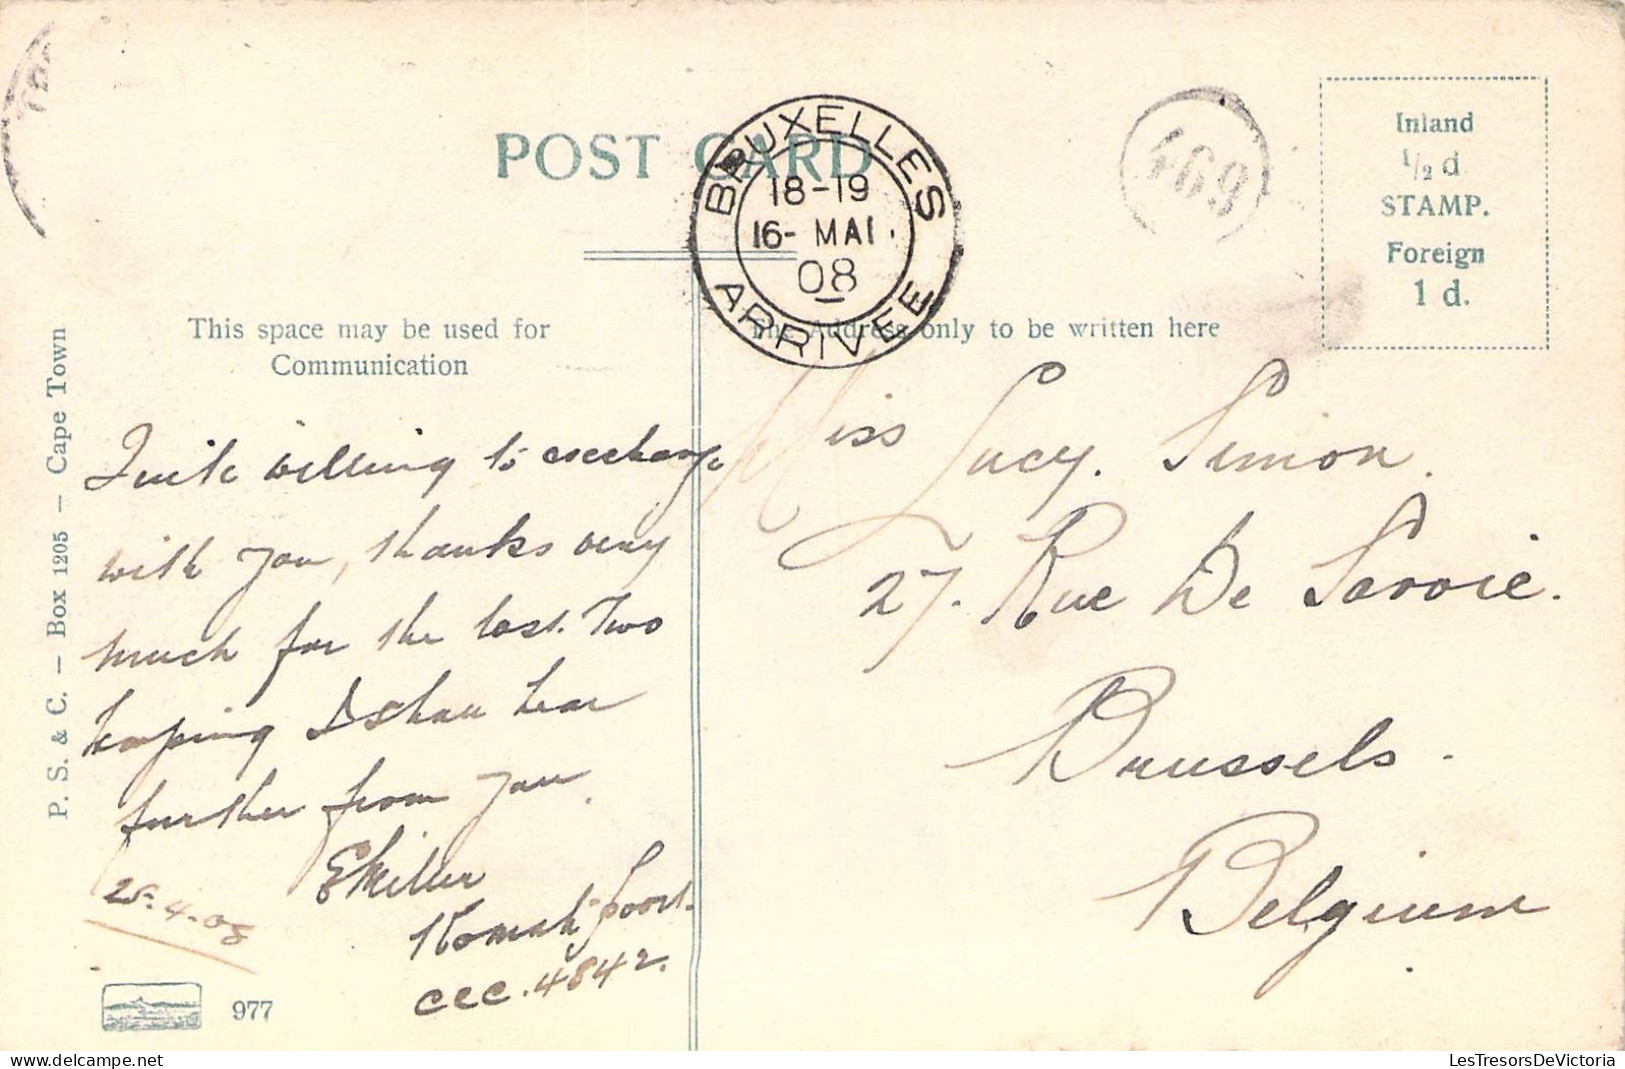 POST CARD
BRUXELLES
18-19
16- MAI.
08
ARRIVEE
469
Inland
1/2 d
STAMP.
Foreign
1 d.
This space may be used for
Communication
The Address only to be written here
P. S. & C. — Box 1205 — Cape Town
Quite willing to exchange
with you, thanks very
much for the last two
hoping I shall hear
further from you.
25.4.08
Komati Poort.
CCC. 4842.
977
Miss Lucy. Simon.
27. Rue De Savoie.
Brussels.
Belgium
LesTresorsDeVictoria
delcampe.net